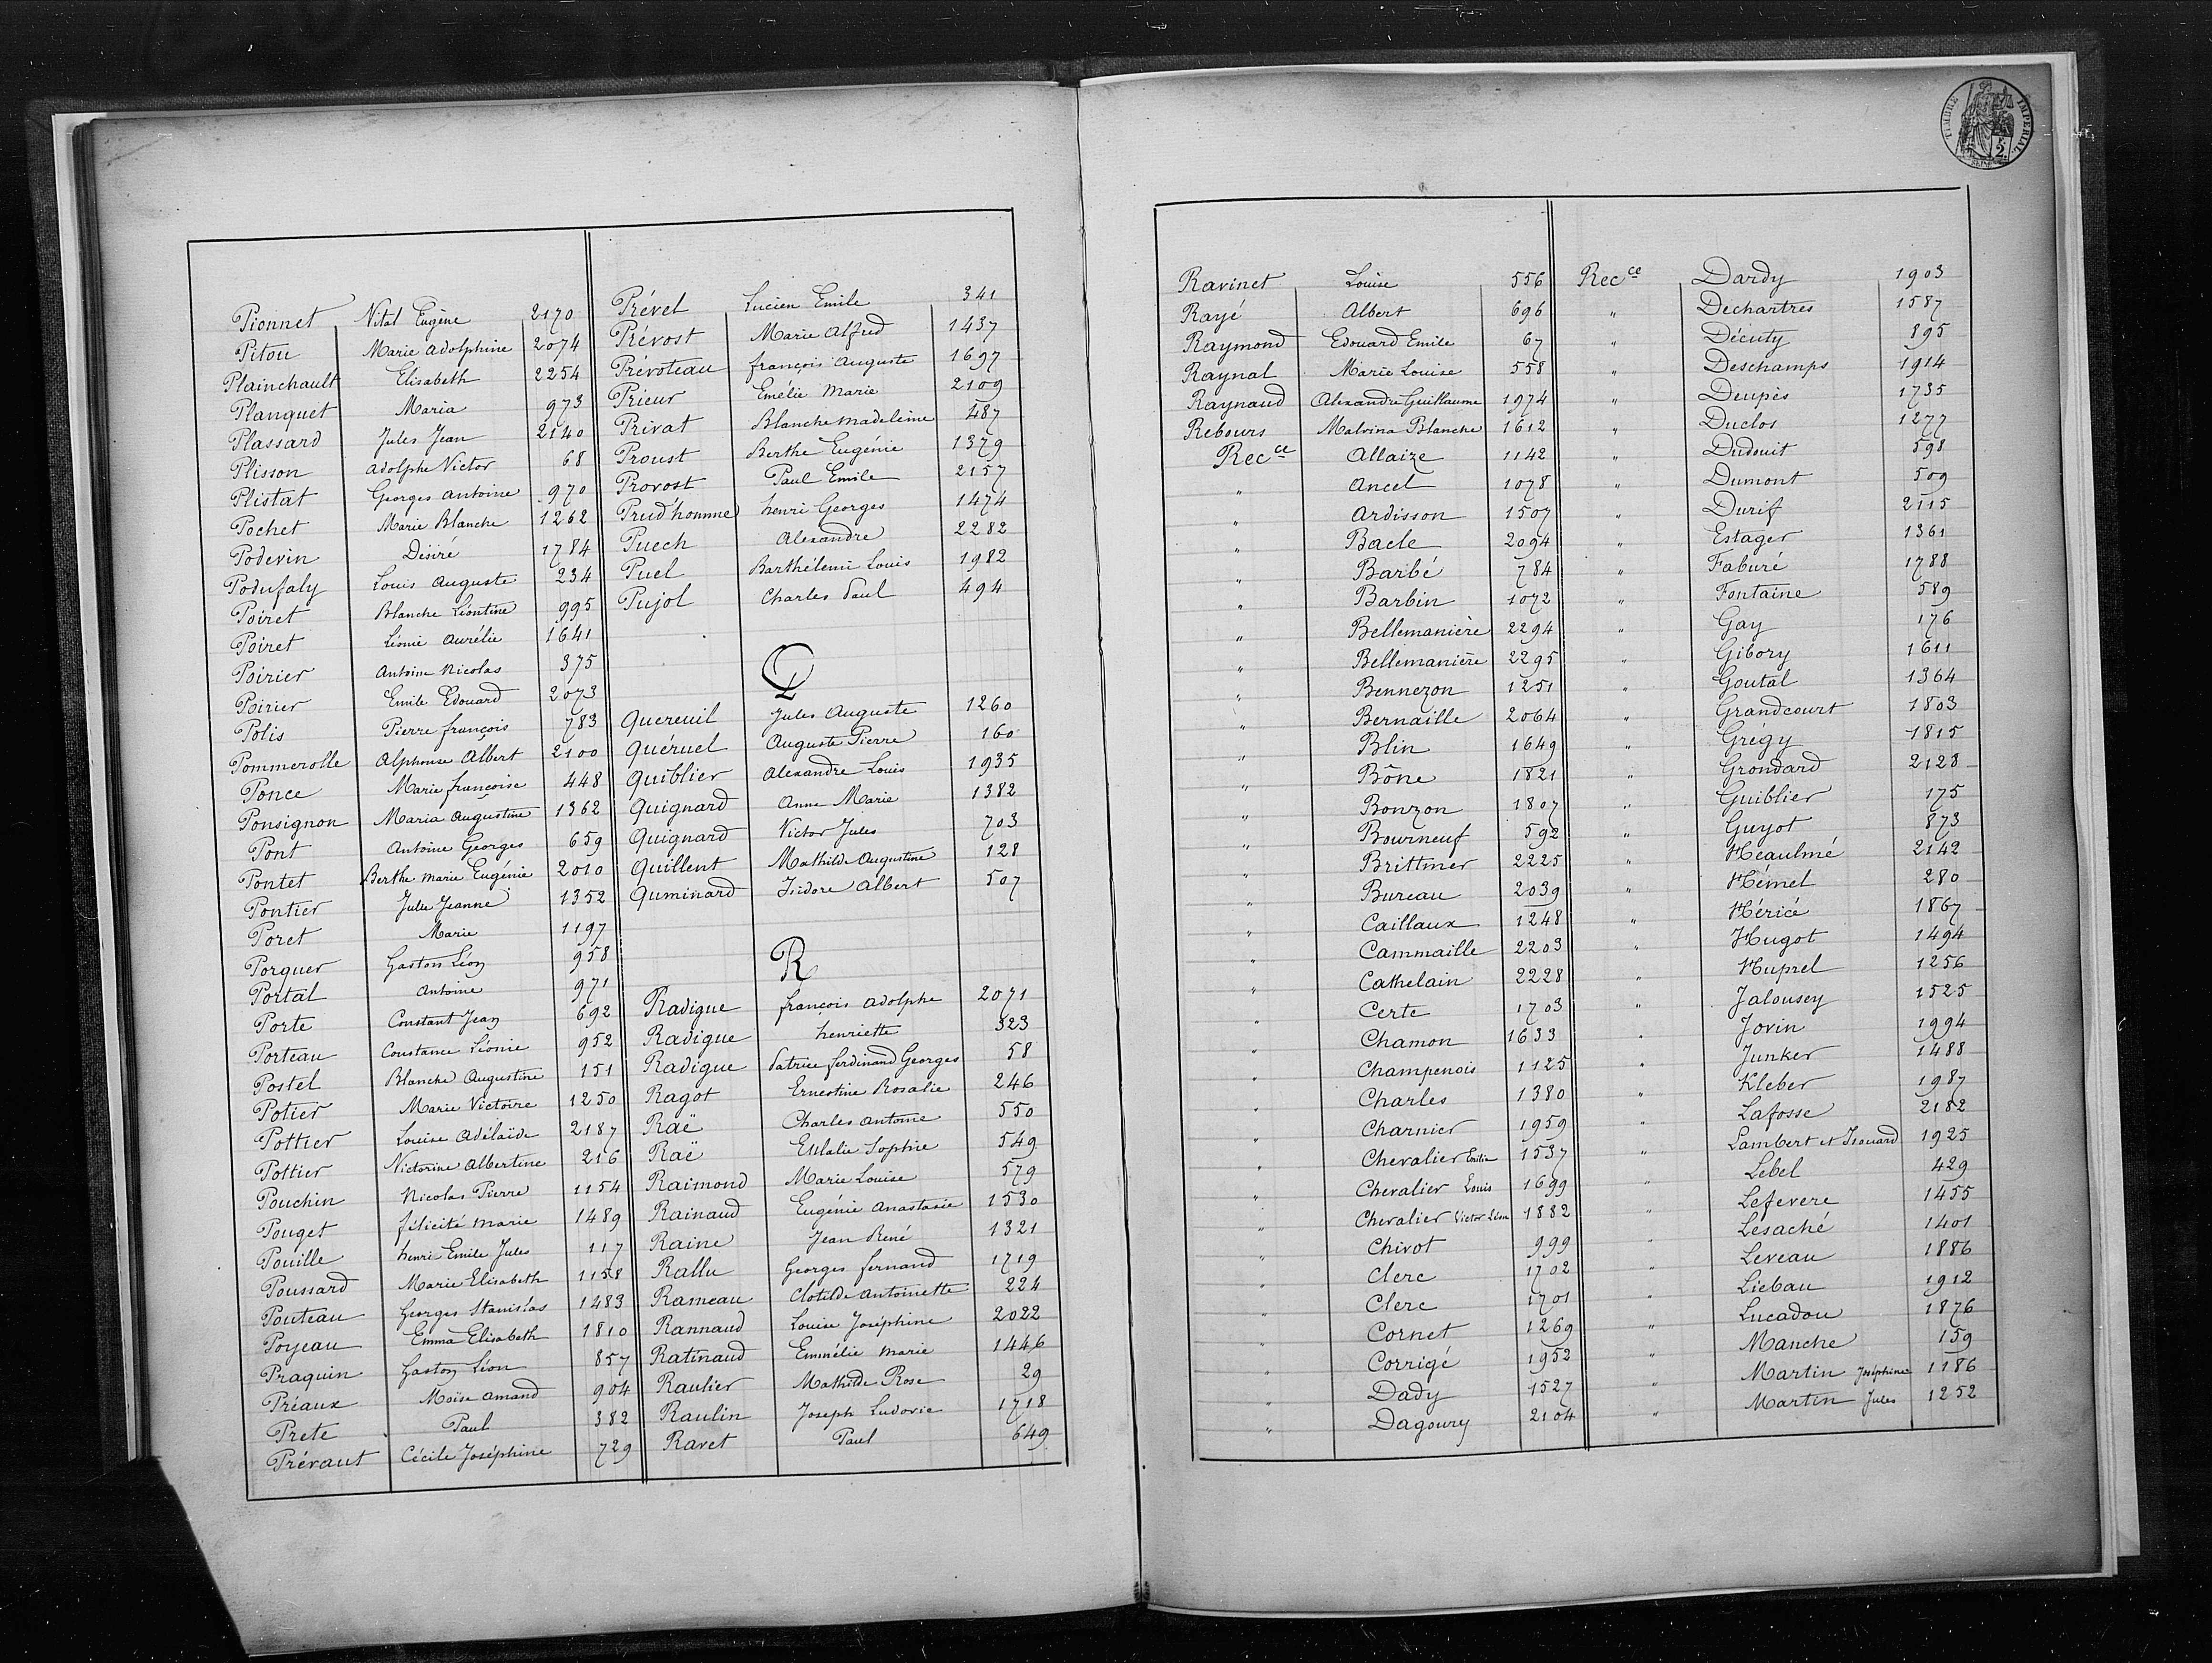 Pionnet Vital Eugène 2170
Pitou Marie Adolphine 2074
Plainchault Elisabeth 2254
Planquet Maria 973
Plassard Jules Jean 2140
Plisson Adolphe Victor 68
Plistat Georges Antoine 970
Pochet Marie Blanche 1262
Podevin Désiré 1784
Podufaly Louis Auguste 234
Poiret Blanche Léontine 995
Poiret Léonie Aurélie 1641
Poirier Antoine Nicolas 375
Poirier Emile Edouard 2073
Polis Pierre françois 783
Pommerolle Alphonse Albert 2100
Ponce Marie françoise 448
Ponsignon Maria Augustine 1362
Pont Antoine Georges 659
Pontet Berthe Marie Eugénie 2010
Pontier Julie Jeanne 1352
Poret Marie 1197
Porquer Gaston Léon 958
Portal Antoine 971
Porte Constant Jean 692
Porteau Constance Léonie 952
Postel Blanche Augustine 151
Potier Marie Victoire 1250
Pottier Louise Adélaïde 2187
Pottier Victorine Albertine 216
Pouchin Nicolas Pierre 1154
Pouget félicité Marie 1489
Pouille henri Emile Jules 117
Poussard Marie Elisabeth 1158
Pouteau Georges Stanislas 1483
Poyeau Emma Elisabeth 1810
Praquin Gaston Léon 857
Préaux Moïse Amand 904
Prete Paul 382
Prévaut Cécile Joséphine 729
Prével Lucien Emile 341
Prévost Marie Alfred 1437
Prévoteau françois Auguste 1697
Prieur Emélie Marie 2109
Privat Blanche Madeleine 487
Proust Berthe Eugénie 1379
Provost Paul Emile 2157
Prud'homme henri Georges 1474
Puech Alexandre 2282
Puel Barthélemi Louis 1982
Pujol Charles Paul 494
Q
Quereuil Jules Auguste 1260
Quéruel Auguste Pierre 160
Quiblier Alexandre Louis 1935
Quignard Anne Marie 1382
Quignard Victor Jules 703
Quillent Mathilde Augustine 128
Quminard Isidore Albert 507
R
Radigue françois Adolphe 2071
Radigue henriette 323
Radigue Patrice ferdinand Georges 58
Ragot Ernestine Rosalie 246
Raë Charles Antoine 550
Raë Eulalie Sophie 549
Raimond Marie Louise 579
Rainaud Eugénie Anastasie 1530
Raine Jean René 1321
Rallu Georges fernand 1719
Rameau Clotilde Antoinette 224
Rannaud Louise Joséphine 2022
Ratinaud Emmélie Marie 1446
Raulier Mathilde Rose 29
Raulin Joseph Ludovic 1718
Ravet Paul 649
TIMBRE IMPERIAL
Ravinet Louise 556
Rayé Albert 696
Raymond Edouard Emile 67
Raynal Marie Louise 558
Raynaud Alexandre Guillaume 1974
Rebours Malvina Blanche 1612
Recce Allaize 1142
" Ancel 1078
" Ardisson 1507
" Bacle 2094
" Barbé 784
" Barbin 1072
" Bellemanière 2294
" Bellemanière 2295
" Bennezon 1251
" Bernaille 2064
" Blin 1649
" Bône 1821
" Bonzon 1807
" Bourneuf 592
" Brittmer 2225
" Bureau 2039
" Caillaux 1248
" Cammaille 2203
" Cathelain 2228
" Certe 1703
" Chamon 1633
" Champenois 1125
" Charles 1380
" Charnier 1959
" Chevalier Emilie 1537
" Chevalier Louis 1699
" Chevalier Victor Léon 1882
" Chivot 999
" Clerc 1702
" Clerc 1701
" Cornet 1269
" Corrigé 1952
" Dady 1527
" Dagoury 2104
Recce Dardy 1903
" Dechartres 1587
" Décuty 895
" Deschamps 1914
" Deupès 1735
" Duclos 1277
" Dudouit 598
" Dumont 509
" Durif 2115
" Estager 1361
" Faburé 1788
" Fontaine 589
" Gay 176
" Gibory 1611
" Goutal 1364
" Grandcourt 1803
" Grégy 1815
" Grondard 2128
" Guiblier 175
" Guyot 873
" Héaulmé 2142
" Hémel 280
" Héricé 1867
" Hugot 1494
" Huprel 1256
" Jalousey 1525
" Jovin 1994
" Junker 1488
" Kleber 1987
" Lafosse 2182
" Lambert et Isouard 1925
" Lebel 429
" Lefevere 1455
" Lesaché 1401
" Leveau 1886
" Liebau 1912
" Lucadou 1876
" Manche 159
" Martin Joséphine 1186
" Martin Jules 1252